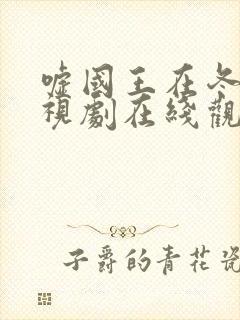 嘘國王在冬
視劇在綫觀
子爵的青花瓷